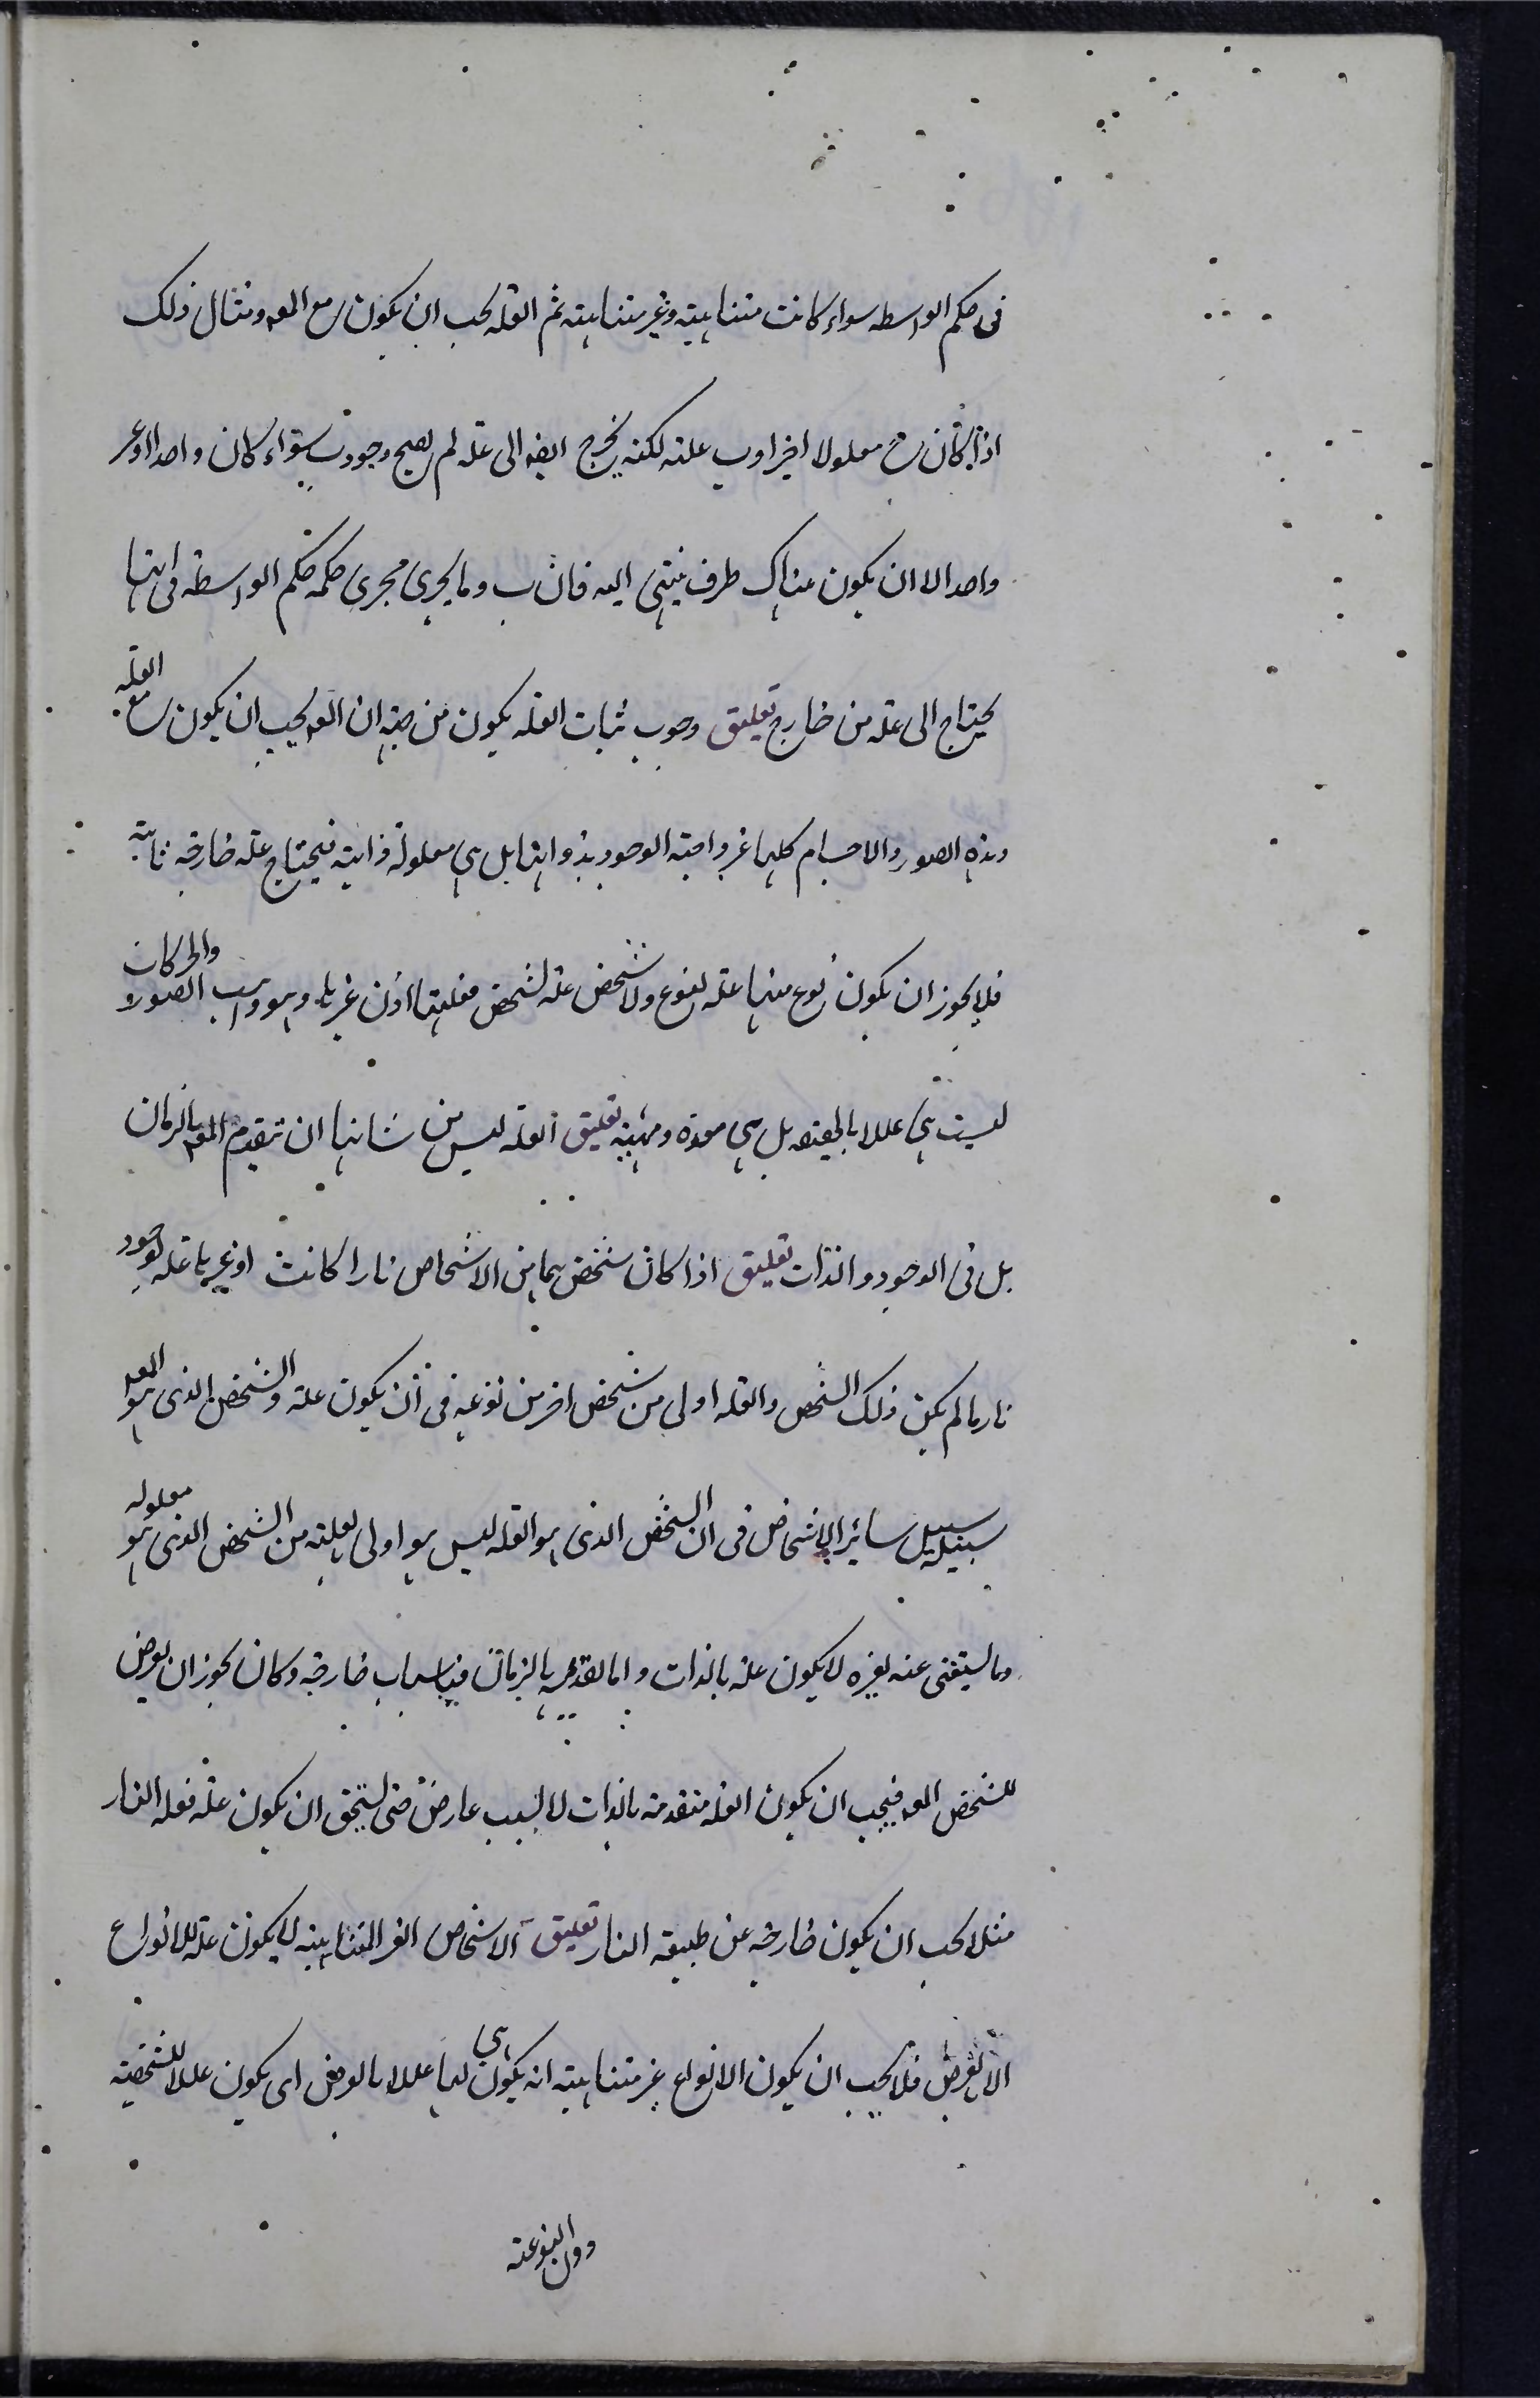 فى حكم الواسطه سواء كانت متناهية وغير متناهية ثم العلة يجب ان يكون مع المعه ومثال ذلك
اذا كان معلولا اخيرا وب علته لكنه يخرج ايضه الى علة لم يصح وجود ب سواء كان واحدا او غير
واحد الا ان يكون هناك طرف ينتهى اليه فان ب وما يجرى مجرى حكمه حكم الواسطة فى انها
يحتاج الى علة من خارج تعليق وجوب ثبات العلة يكون من جهة ان المعه يجب ان يكون مع العلة
وهذه الصور والاجسام كلها غير واجبة الوجود بذواتها بل هى معلولة ذاتية فيحتاج علة خارجة ثابتة
فلا يجوز ان يكون نوع منها علة لنوع ولا شخص علة لشخص فعليتها اذن غيرها وهو واهب الصور والحركات
ليست هى عللا بالحقيقه بل هى معدة ومهيئة تعليق العلة ليس من شانها ان تتقدم المعه بالزمان
بل فى الوجود والذات تعليق اذا كان شخص ما من الاشخاص نارا كانت او غيرها علة لوجود
نار ما لم يكن ذلك الشخص والعلة اولى من شخص اخر من نوعه فى ان يكون علة والشخص الذى هو المعه
سبيله سبيل سائر الاشخاص فى ان الشخص الذى هو العلة ليس هو اولى لعلته من الشخص الذى هو معلوله
وما يستغنى عنه بغيره لا يكون علة بالذات واما تقدمه بالزمان فباسباب خارجة وكان يجوز ان يعرض
للشخص المعه فيجب ان يكون العلة متقدمة بالذات لا لسبب عارض حتى يستحق ان يكون علة فعله النار
مثلا يجب ان يكون خارجة عن طبيعة النار تعليق الاشخاص الغير المتناهية لا يكون علة للانواع
الا بالعرض فلا يجب ان يكون الانواع غير متناهية انه يكون هى لها عللا بالعرض اى يكون عللا للشخصية
دون النوعية